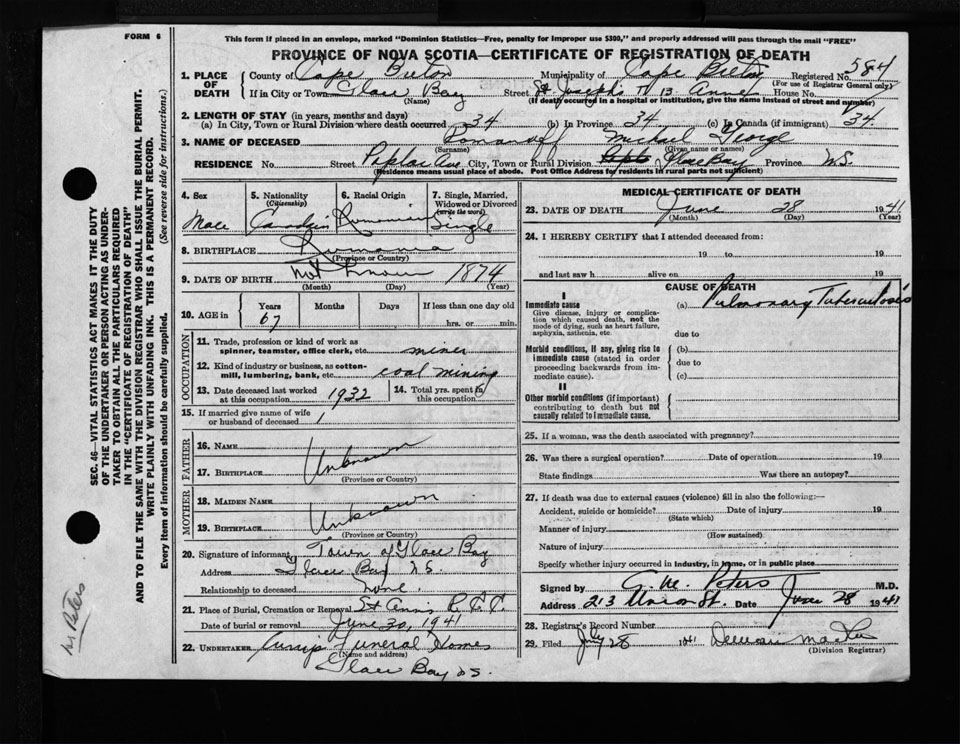 FORM 6
This form if placed in an envelope, marked "Dominion Statistics—Free, penalty for improper use $300," and properly addressed will pass through the mail "FREE"
PROVINCE OF NOVA SCOTIA—CERTIFICATE OF REGISTRATION OF DEATH
1. PLACE OF DEATH County of Cape Breton Municipality of Cape Breton Registered No. 584
(For use of Registrar General only)
If in City or Town Glace Bay Street St Joseph's 13 House No.
(Name) (If death occurred in a hospital or institution, give the name instead of street and number)
2. LENGTH OF STAY (in years, months and days)
(a) In City, Town or Rural Division where death occurred 34 (b) In Province 34 (c) In Canada (if immigrant) 34
3. NAME OF DECEASED George
(Surname) (Given name or names)
RESIDENCE No. Street Poplar Ave City, Town or Rural Division Glace Bay Province N.S.
(Residence means usual place of abode. Post Office Address for residents in rural parts not sufficient)
4. Sex
Male
5. Nationality
(Citizenship)
Canadian
6. Racial Origin
Rumanian
7. Single, Married, Widowed or Divorced
(write the word)
Single
8. BIRTHPLACE Rumania
(Province or Country)
9. DATE OF BIRTH not known 1874
(Month) (Day) (Year)
10. AGE in Years Months Days If less than one day old
67 hrs. or min.
OCCUPATION
11. Trade, profession or kind of work as spinner, teamster, office clerk, etc. miner
12. Kind of industry or business, as cotton-mill, lumbering, bank, etc. coal mining
13. Date deceased last worked at this occupation 1932 14. Total yrs. spent in this occupation
15. If married give name of wife or husband of deceased
FATHER
16. NAME
Unknown
17. BIRTHPLACE
(Province or Country)
MOTHER
18. MAIDEN NAME
Unknown
19. BIRTHPLACE
(Province or Country)
20. Signature of informant Town of Glace Bay
Address Glace Bay N.S.
Relationship to deceased none
21. Place of Burial, Cremation or Removal St Ann's R.C.C.
Date of burial or removal June 30, 1941
22. UNDERTAKER Funeral Home
(Name and address)
Glace Bay NS.
MEDICAL CERTIFICATE OF DEATH
23. DATE OF DEATH June 28 1941
(Month) (Day) (Year)
24. I HEREBY CERTIFY that I attended deceased from:
19 to 19
and last saw h alive on 19
CAUSE OF DEATH
I
Immediate cause (a) Pulmonary Tuberculosis
Give disease, injury or complication which caused death, not the mode of dying, such as heart failure, asphyxia, asthenia, etc.
due to
Morbid conditions, if any, giving rise to immediate cause (stated in order proceeding backwards from immediate cause).
(b)
due to
(c)
II
Other morbid conditions (if important) contributing to death but not causally related to immediate cause.
25. If a woman, was the death associated with pregnancy?
26. Was there a surgical operation? Date of operation 19
State findings Was there an autopsy?
27. If death was due to external causes (violence) fill in also the following:—
Accident, suicide or homicide? Date of injury 19
(State which)
Manner of injury
(How sustained)
Nature of injury
Specify whether injury occurred in industry, in home, or in public place
Signed by G. M. Peters M.D.
Address 213 Union St. Date June 28 1941
28. Registrar's Record Number
29. Filed July 28 1941
(Division Registrar)
SEC. 46—VITAL STATISTICS ACT MAKES IT THE DUTY
OF THE UNDERTAKER OR PERSON ACTING AS UNDER-
TAKER TO OBTAIN ALL THE PARTICULARS REQUIRED
IN THE "CERTIFICATE OF REGISTRATION OF DEATH"
AND TO FILE THE SAME WITH THE DIVISION REGISTRAR WHO SHALL ISSUE THE BURIAL PERMIT.
WRITE PLAINLY WITH UNFADING INK. THIS IS A PERMANENT RECORD.
Every item of information should be carefully supplied. (See reverse side for instructions.)
Peters